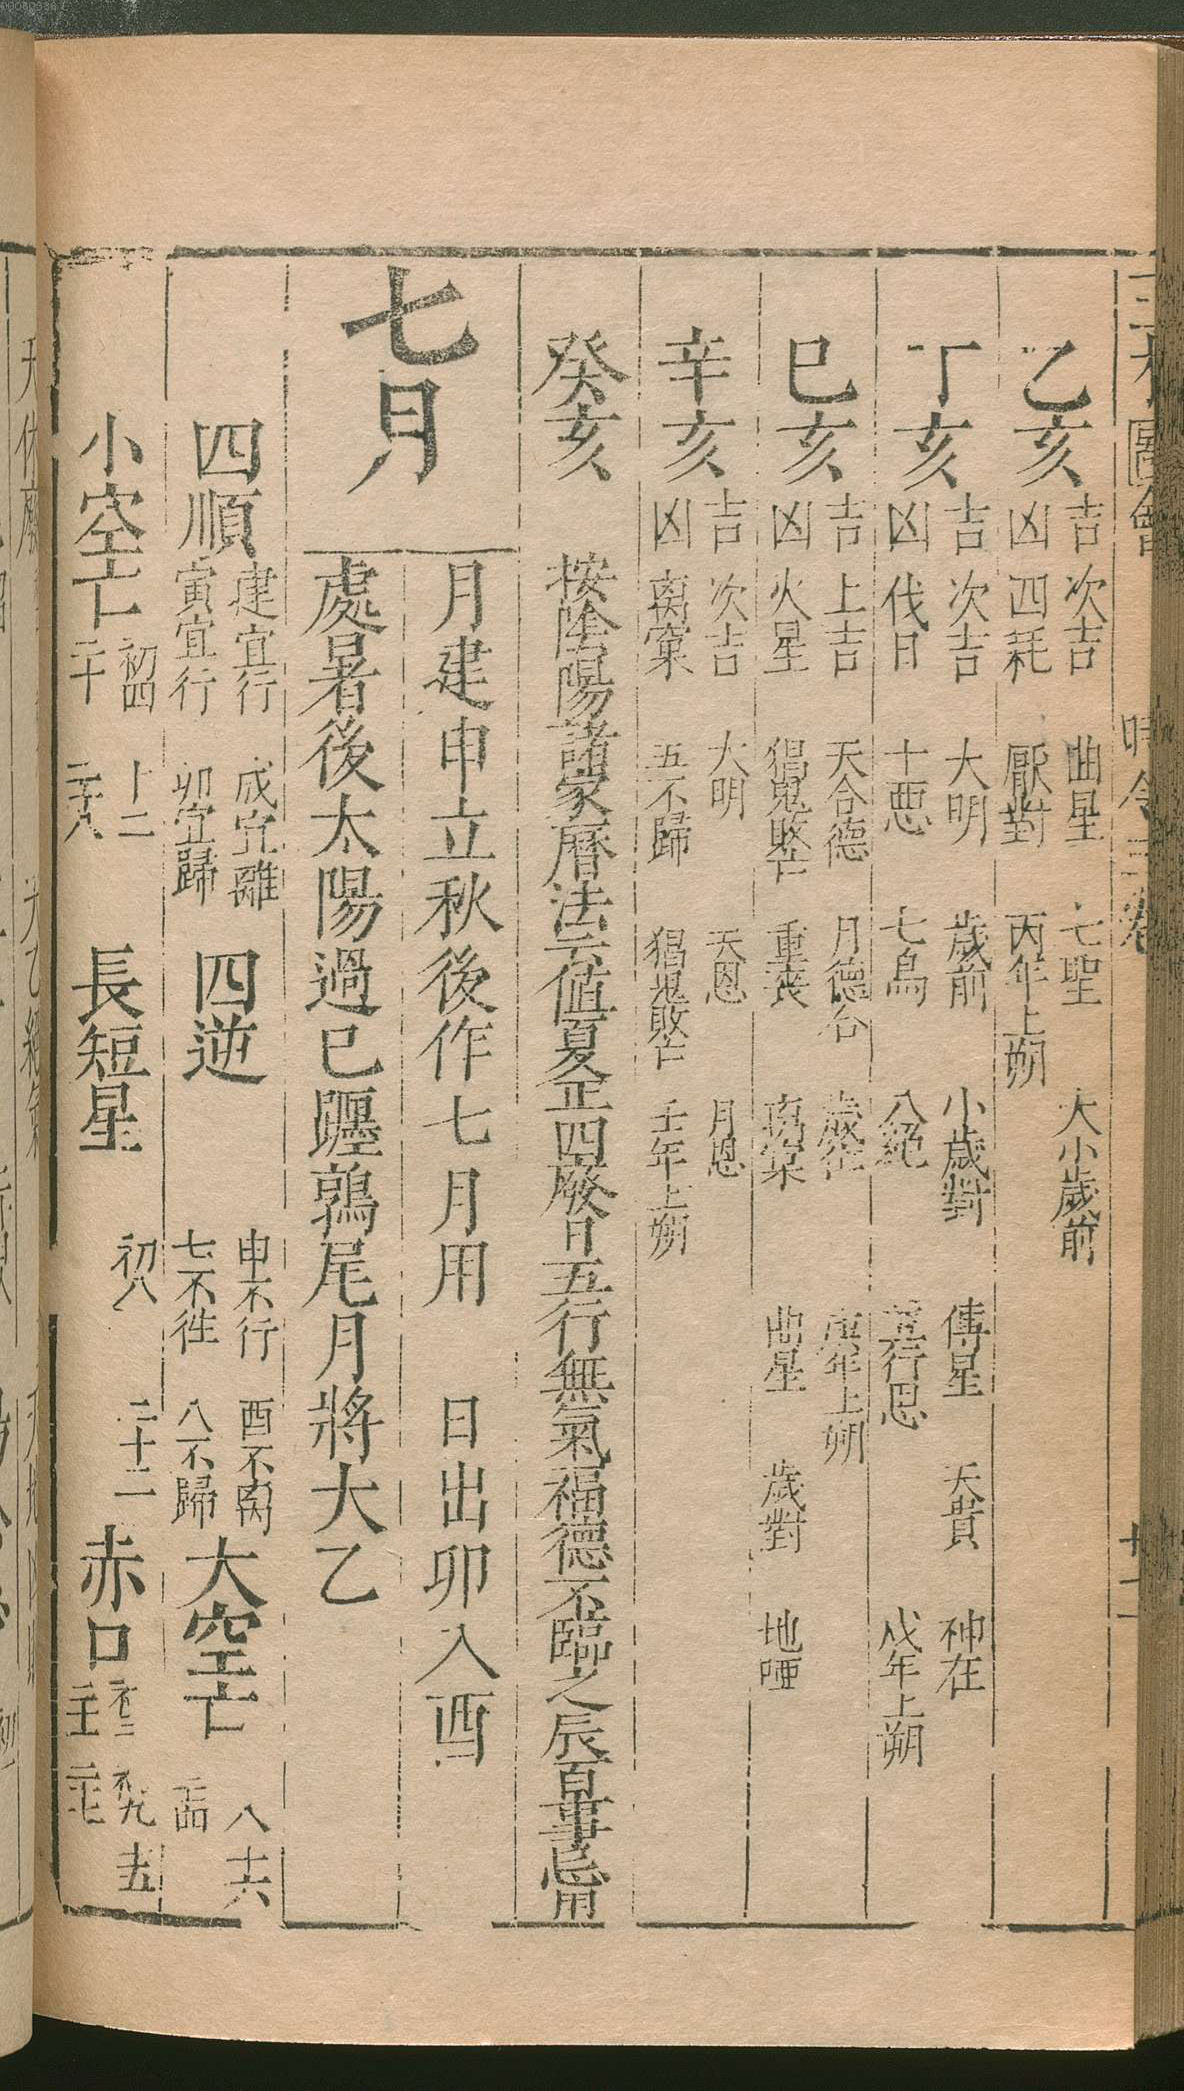 三才圖會 時令三卷 廿二
乙亥
吉 次吉 曲星 七聖 大小歲前
凶 四耗 厭對 丙年上朔
丁亥
吉 次吉 大明 歲前 小歲對 傳星 天貴 神在
凶 伐日 十惡 七鳥 八絕 戊年上朔
巳亥
吉 上吉 天合德 月德合 庚年上朔
凶 火星 猖鬼敗亡 重喪 离窠 曲星 歲對 地啞
辛亥
吉 次吉 大明 天恩 月恩
凶 离窠 五不歸 猖鬼敗亡 壬年上朔
癸亥 按陰陽諸家曆法云值夏正四廢日五行無氣福德不臨之辰百事忌用
七月
月建申立秋後作七月用 日出卯入酉
處暑後太陽過巳躔鶉尾月將太乙
四順
建宜行 成宜離
寅宜行 卯宜歸
四逆
申不行 酉不离
七不徃 八不歸
大空亡
八 十六
二十四
小空亡
初四 十二
二十 二十八
長短星
初八 二十二
赤口
初三 初九 十五